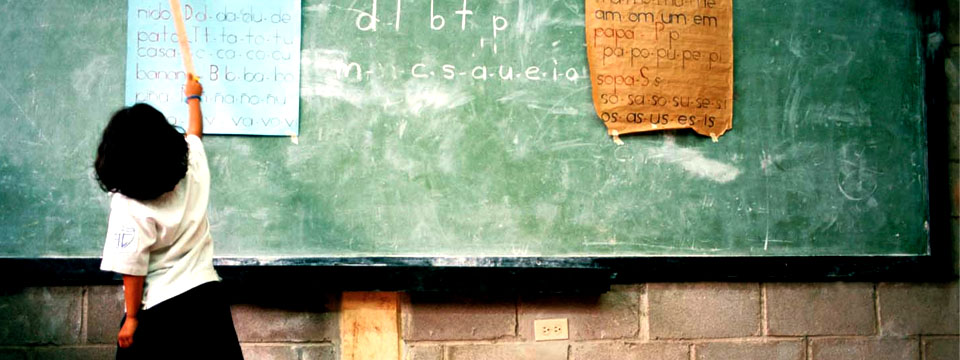 nido D d da du de
pato T t ta to tu
casa C c ca co cu
banano B b ba bo
piña Ñ ñ ña ño ñu
va vo v
d l b t p
n
m n c s a u e i o
am om um em
papa P p
pa po pu pe pi
sopa S s
sa so su se si
os as us es is